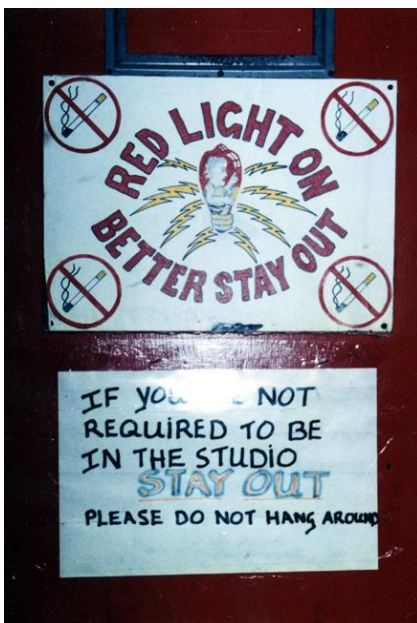 RED LIGHT ON
BETTER STAY OUT
IF NOT
REQUIRED TO BE
IN THE STUDIO
STAY OUT
PLEASE DO NOT HANG AROUND